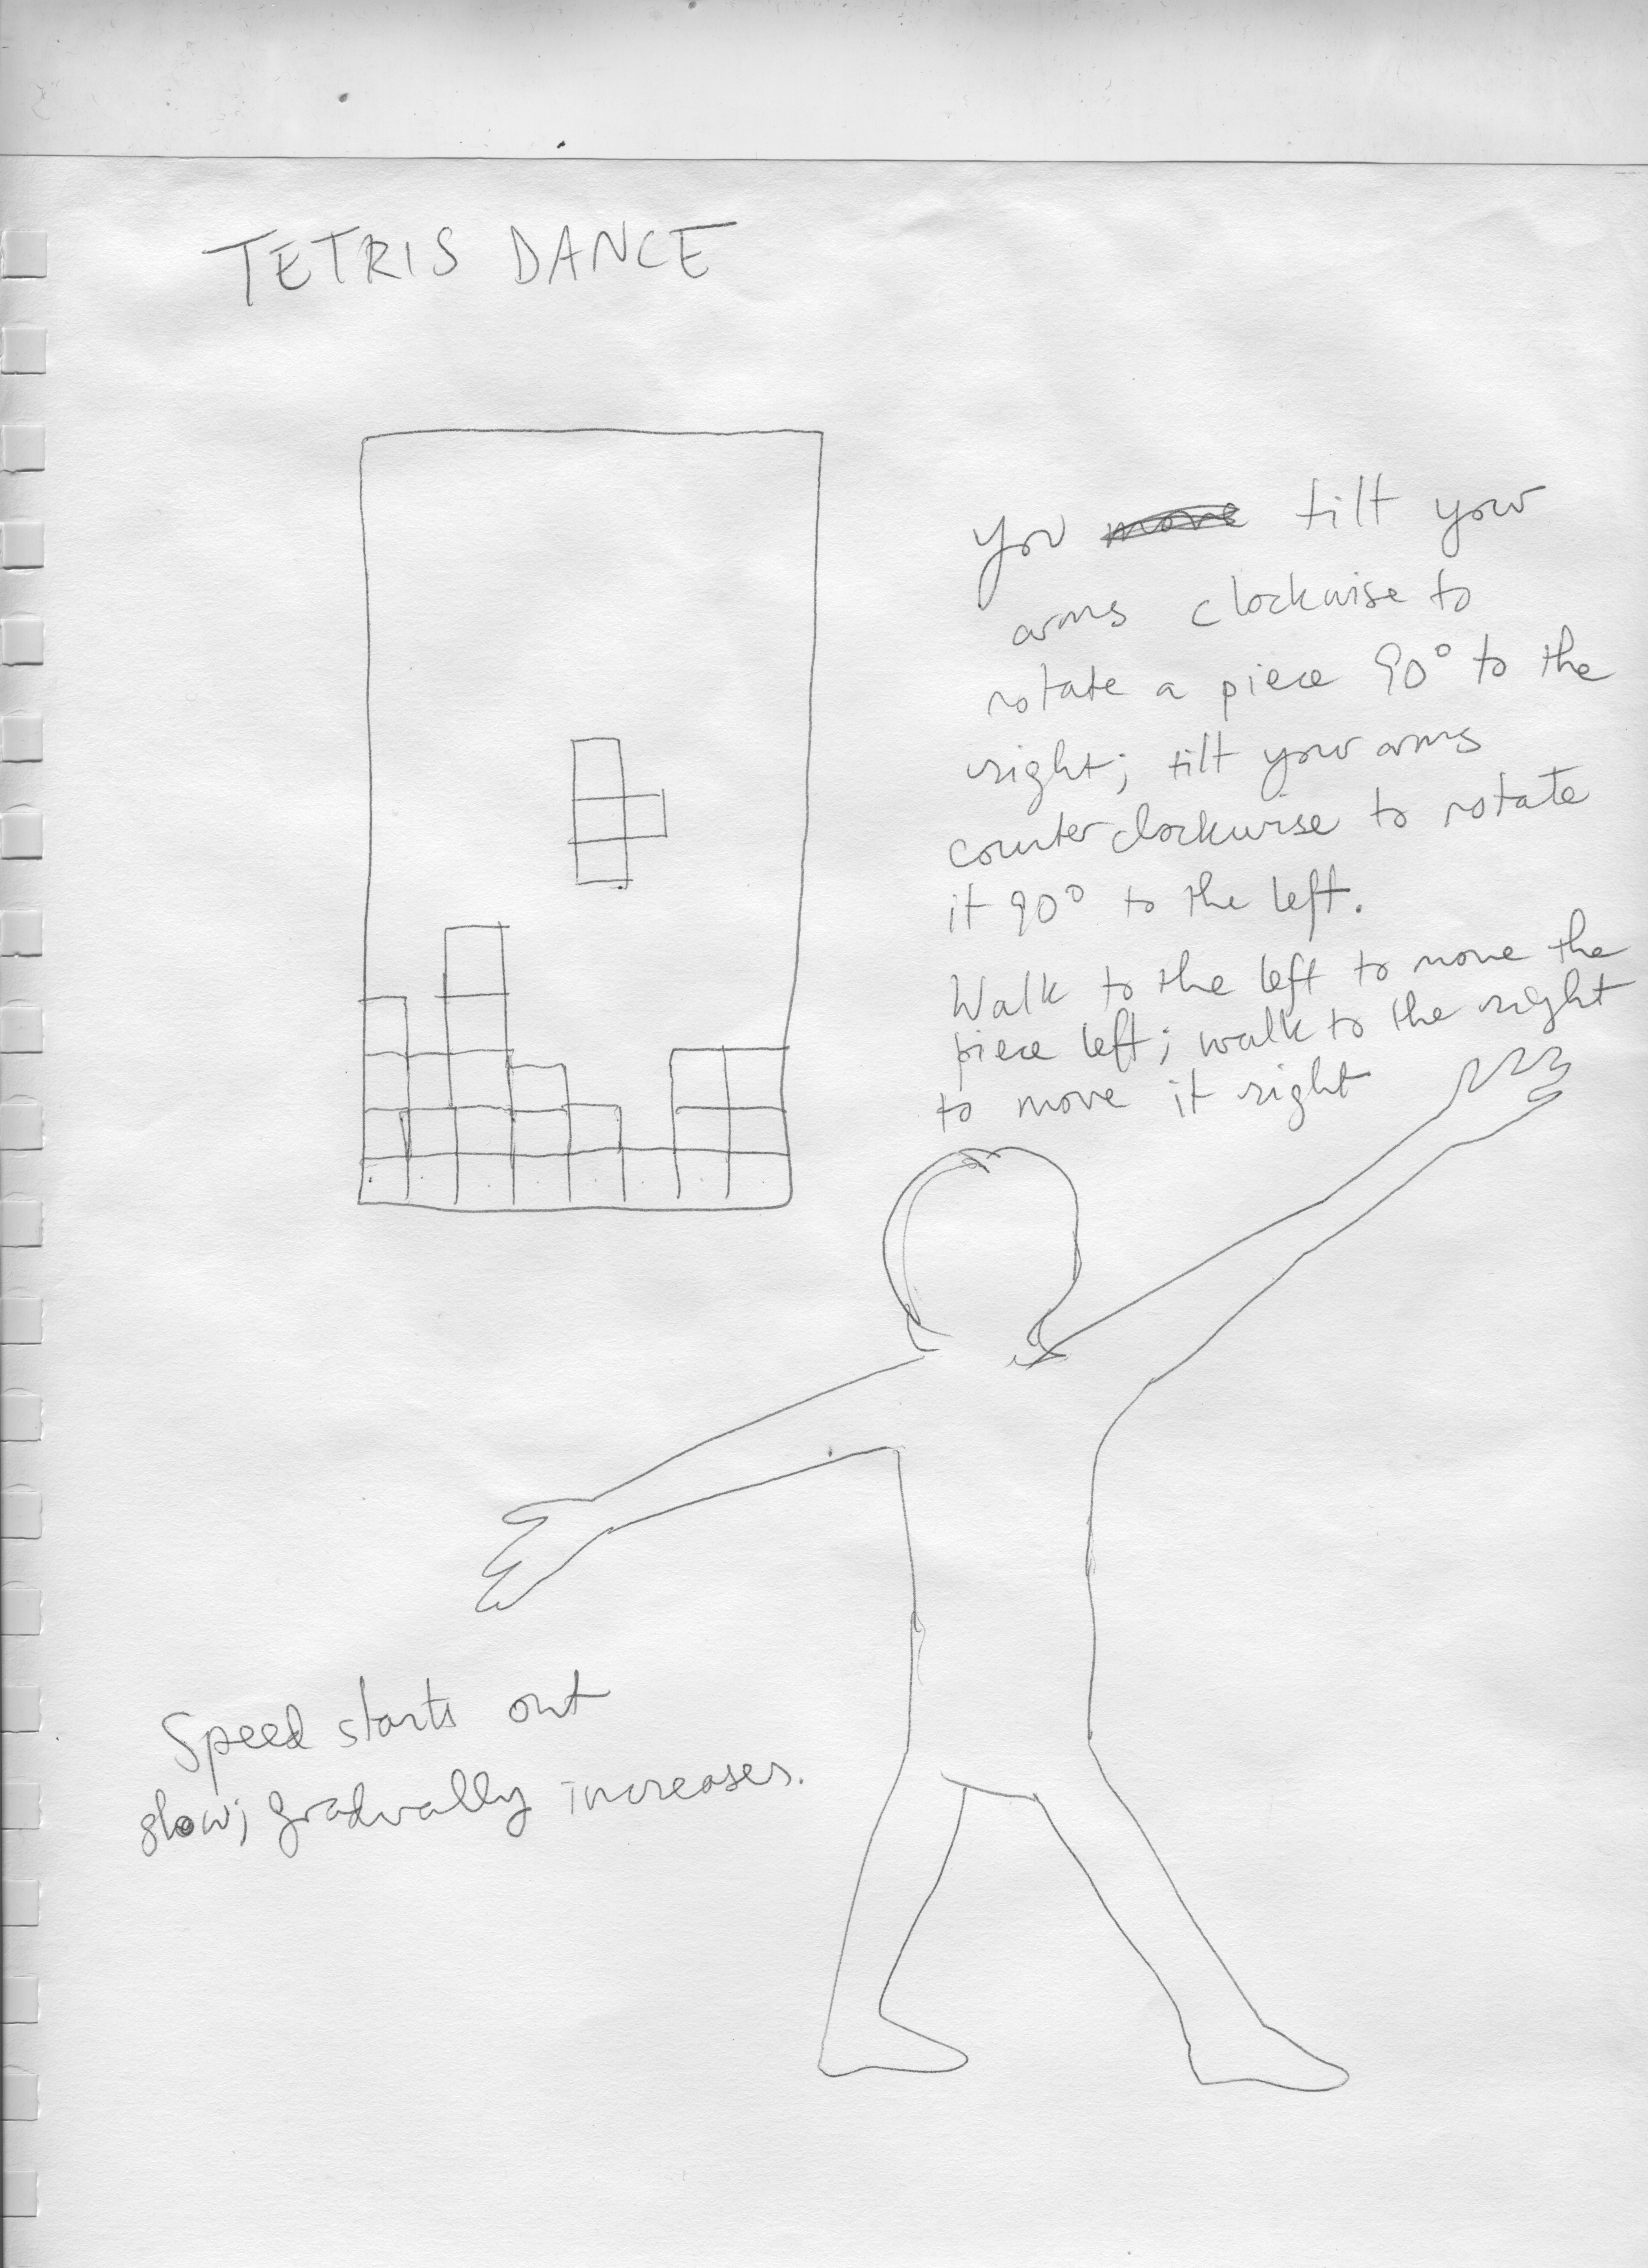 TETRIS DANCE
You tilt your
arms clockwise to
rotate a piece 90° to the
right; tilt your arms
counterclockwise to rotate
it 90° to the left.
Walk to the left to move the
piece left; walk to the right
to move it right
Speed starts out
slow; gradually increases.